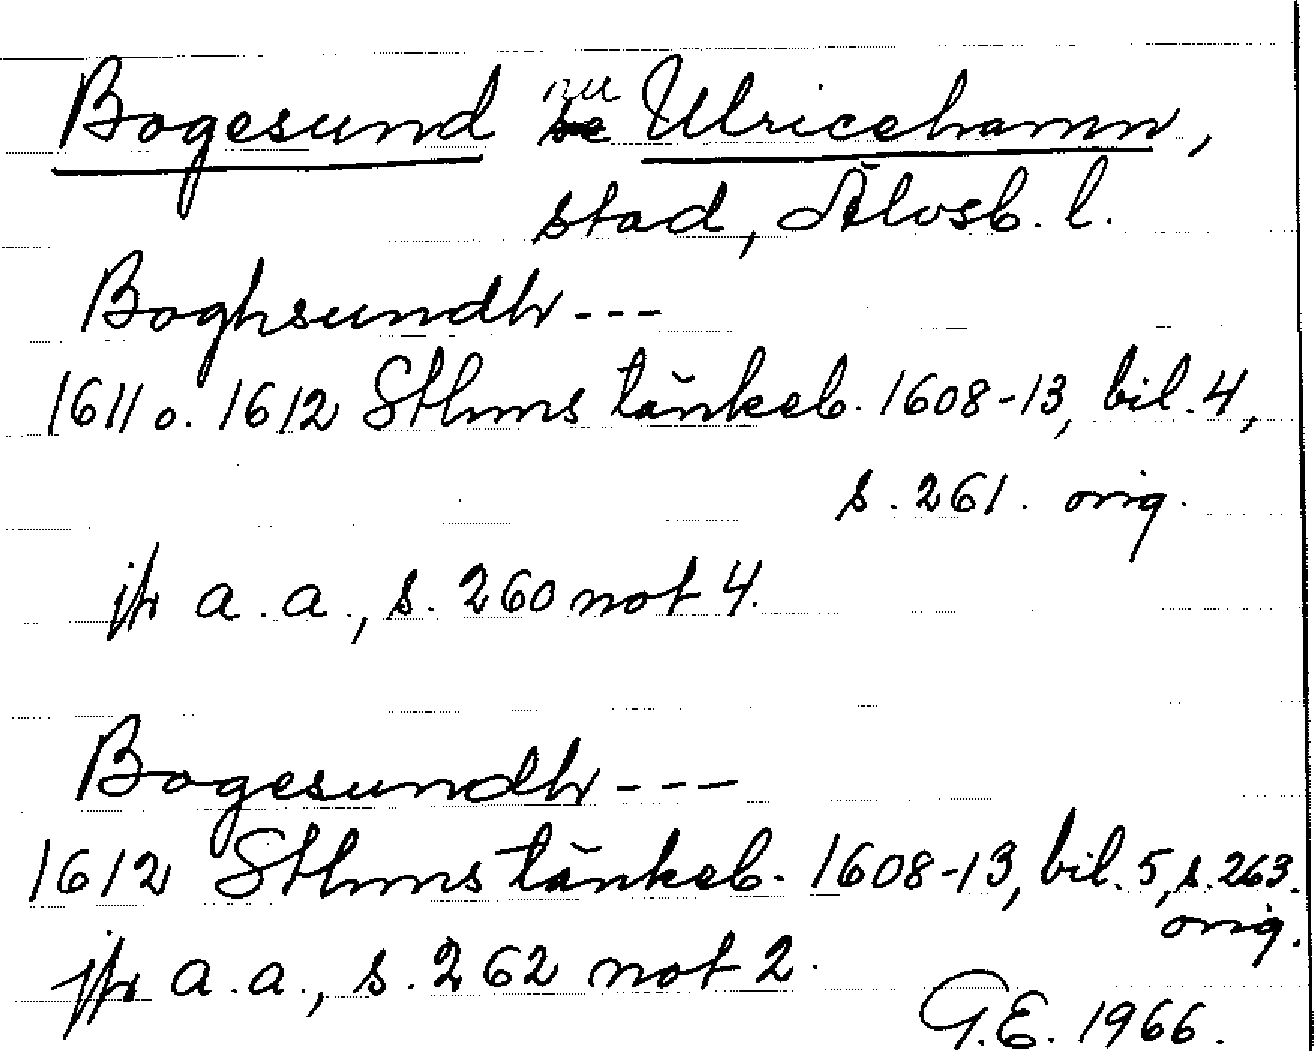 Bogesund nu Ulricehamn,
stad, Älvsb. l.
Boghsundh ---
1611 o. 1612 Sthms tänkeb. 1608-13, bil. 4,
s. 261. orig.
jfr a.a., s. 260 not 4.
Bogesundh ---
1612 Sthms tänkeb. 1608-13, bil. 5, s. 263.
orig.
jfr a.a., s. 262 not 2.
G.E. 1966.